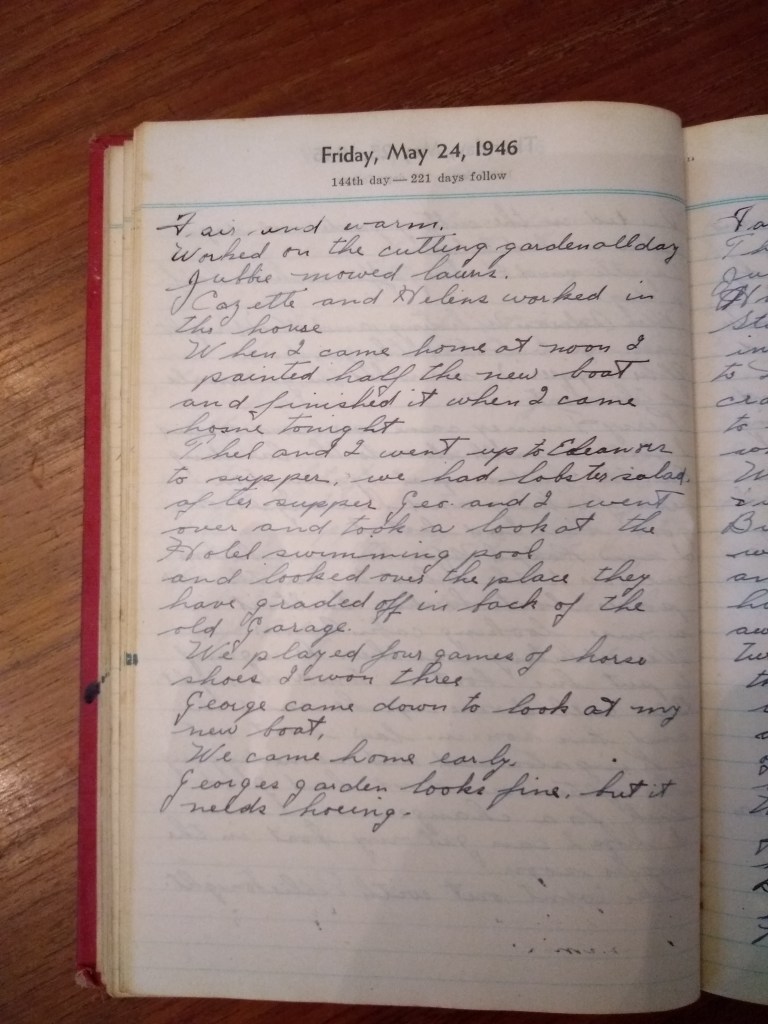 Friday, May 24, 1946
144th day — 221 days follow
Fair and warm.
Worked on the cutting garden all day
Jubbie mowed lawns.
Cozette and Helens worked in
the house
When I came home at noon I
painted half the new boat
and finished it when I came
home tonight
Thel and I went up to Eleanor
to supper, we had lobster salad.
after supper Geo. and I went
over and took a look at the
Hotel swimming pool
and looked over the place they
have graded off in back of the
old Garage.
We played four games of horse
shoes I won three
George came down to look at my
new boat,
We came home early.
Georges garden looks fine. but it
needs hoeing.